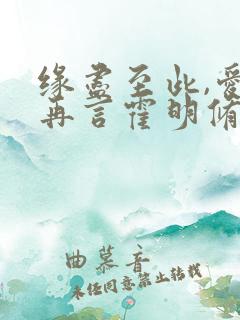 缘尽至此,爱
再言霍明脩
曲慕音
未经同意禁止转载